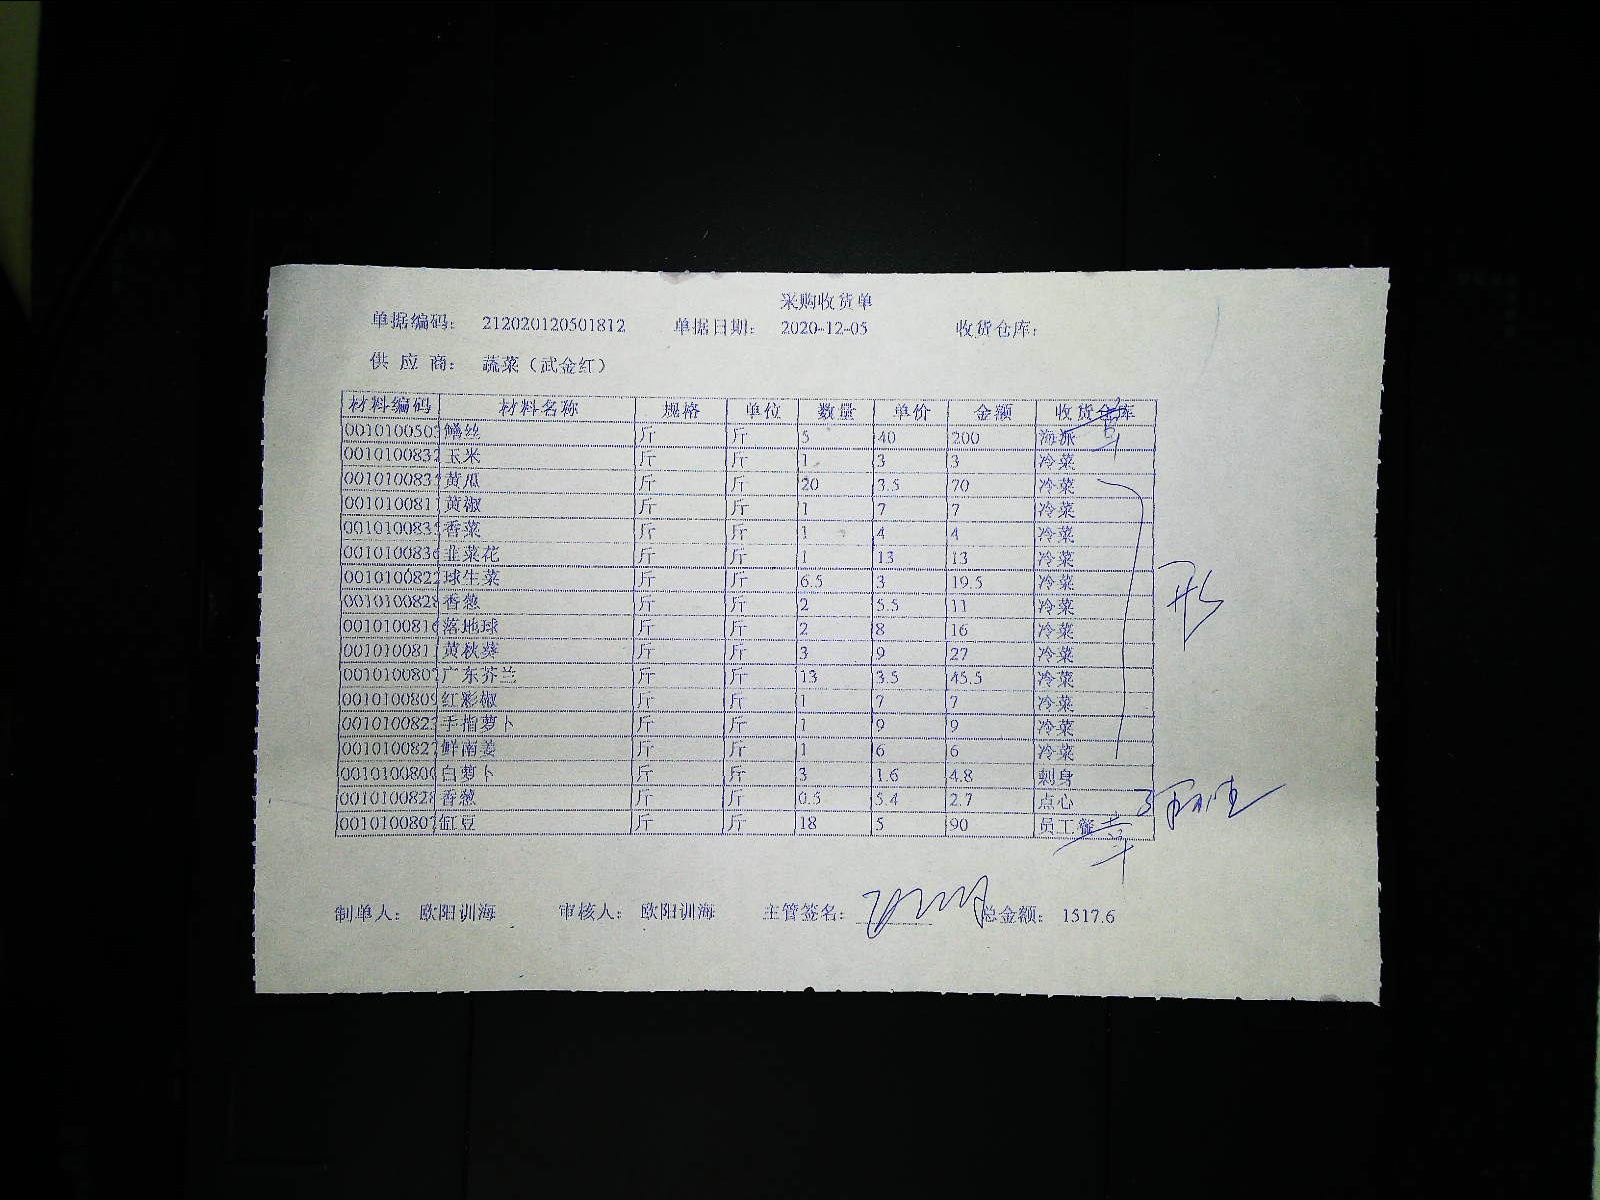 采购收货单
单据编码： 212020120501812 单据日期： 2020-12-05 收货仓库：
供 应 商： 蔬菜（武金红）
材料编码 材料名称 规格 单位 数量 单价 金额 收货仓库
0010100503 鳝丝 斤 斤 5 40 200 海派
0010100832 玉米 斤 斤 1 3 3 冷菜
001010083 黄瓜 斤 斤 20 3.5 70 冷菜
001010081 黄椒 斤 斤 1 7 7 冷菜
001010083 香菜 斤 斤 1 4 4 冷菜
0010100836 韭菜花 斤 斤 1 13 13 冷菜
0010100822 球生菜 斤 斤 6.5 3 19.5 冷菜
0010100828 香葱 斤 斤 2 5.5 11 冷菜
0010100816 落地球 斤 斤 2 8 16 冷菜
001010081 黄秋葵 斤 斤 3 9 27 冷菜
0010100807 广东芥兰 斤 斤 13 3.5 45.5 冷菜
0010100809 红彩椒 斤 斤 1 7 7 冷菜
0010100823 手指萝卜 斤 斤 1 9 9 冷菜
0010100827 鲜南姜 斤 斤 1 6 6 冷菜
0010100800 白萝卜 斤 斤 3 1.6 4.8 刺身
0010100828 香葱 斤 斤 0.5 5.4 2.7 点心
0010100807 缸豆 斤 斤 18 5 90 员工餐
制单人： 欧阳训海 审核人： 欧阳训海 主管签名： 总金额： 1517.6